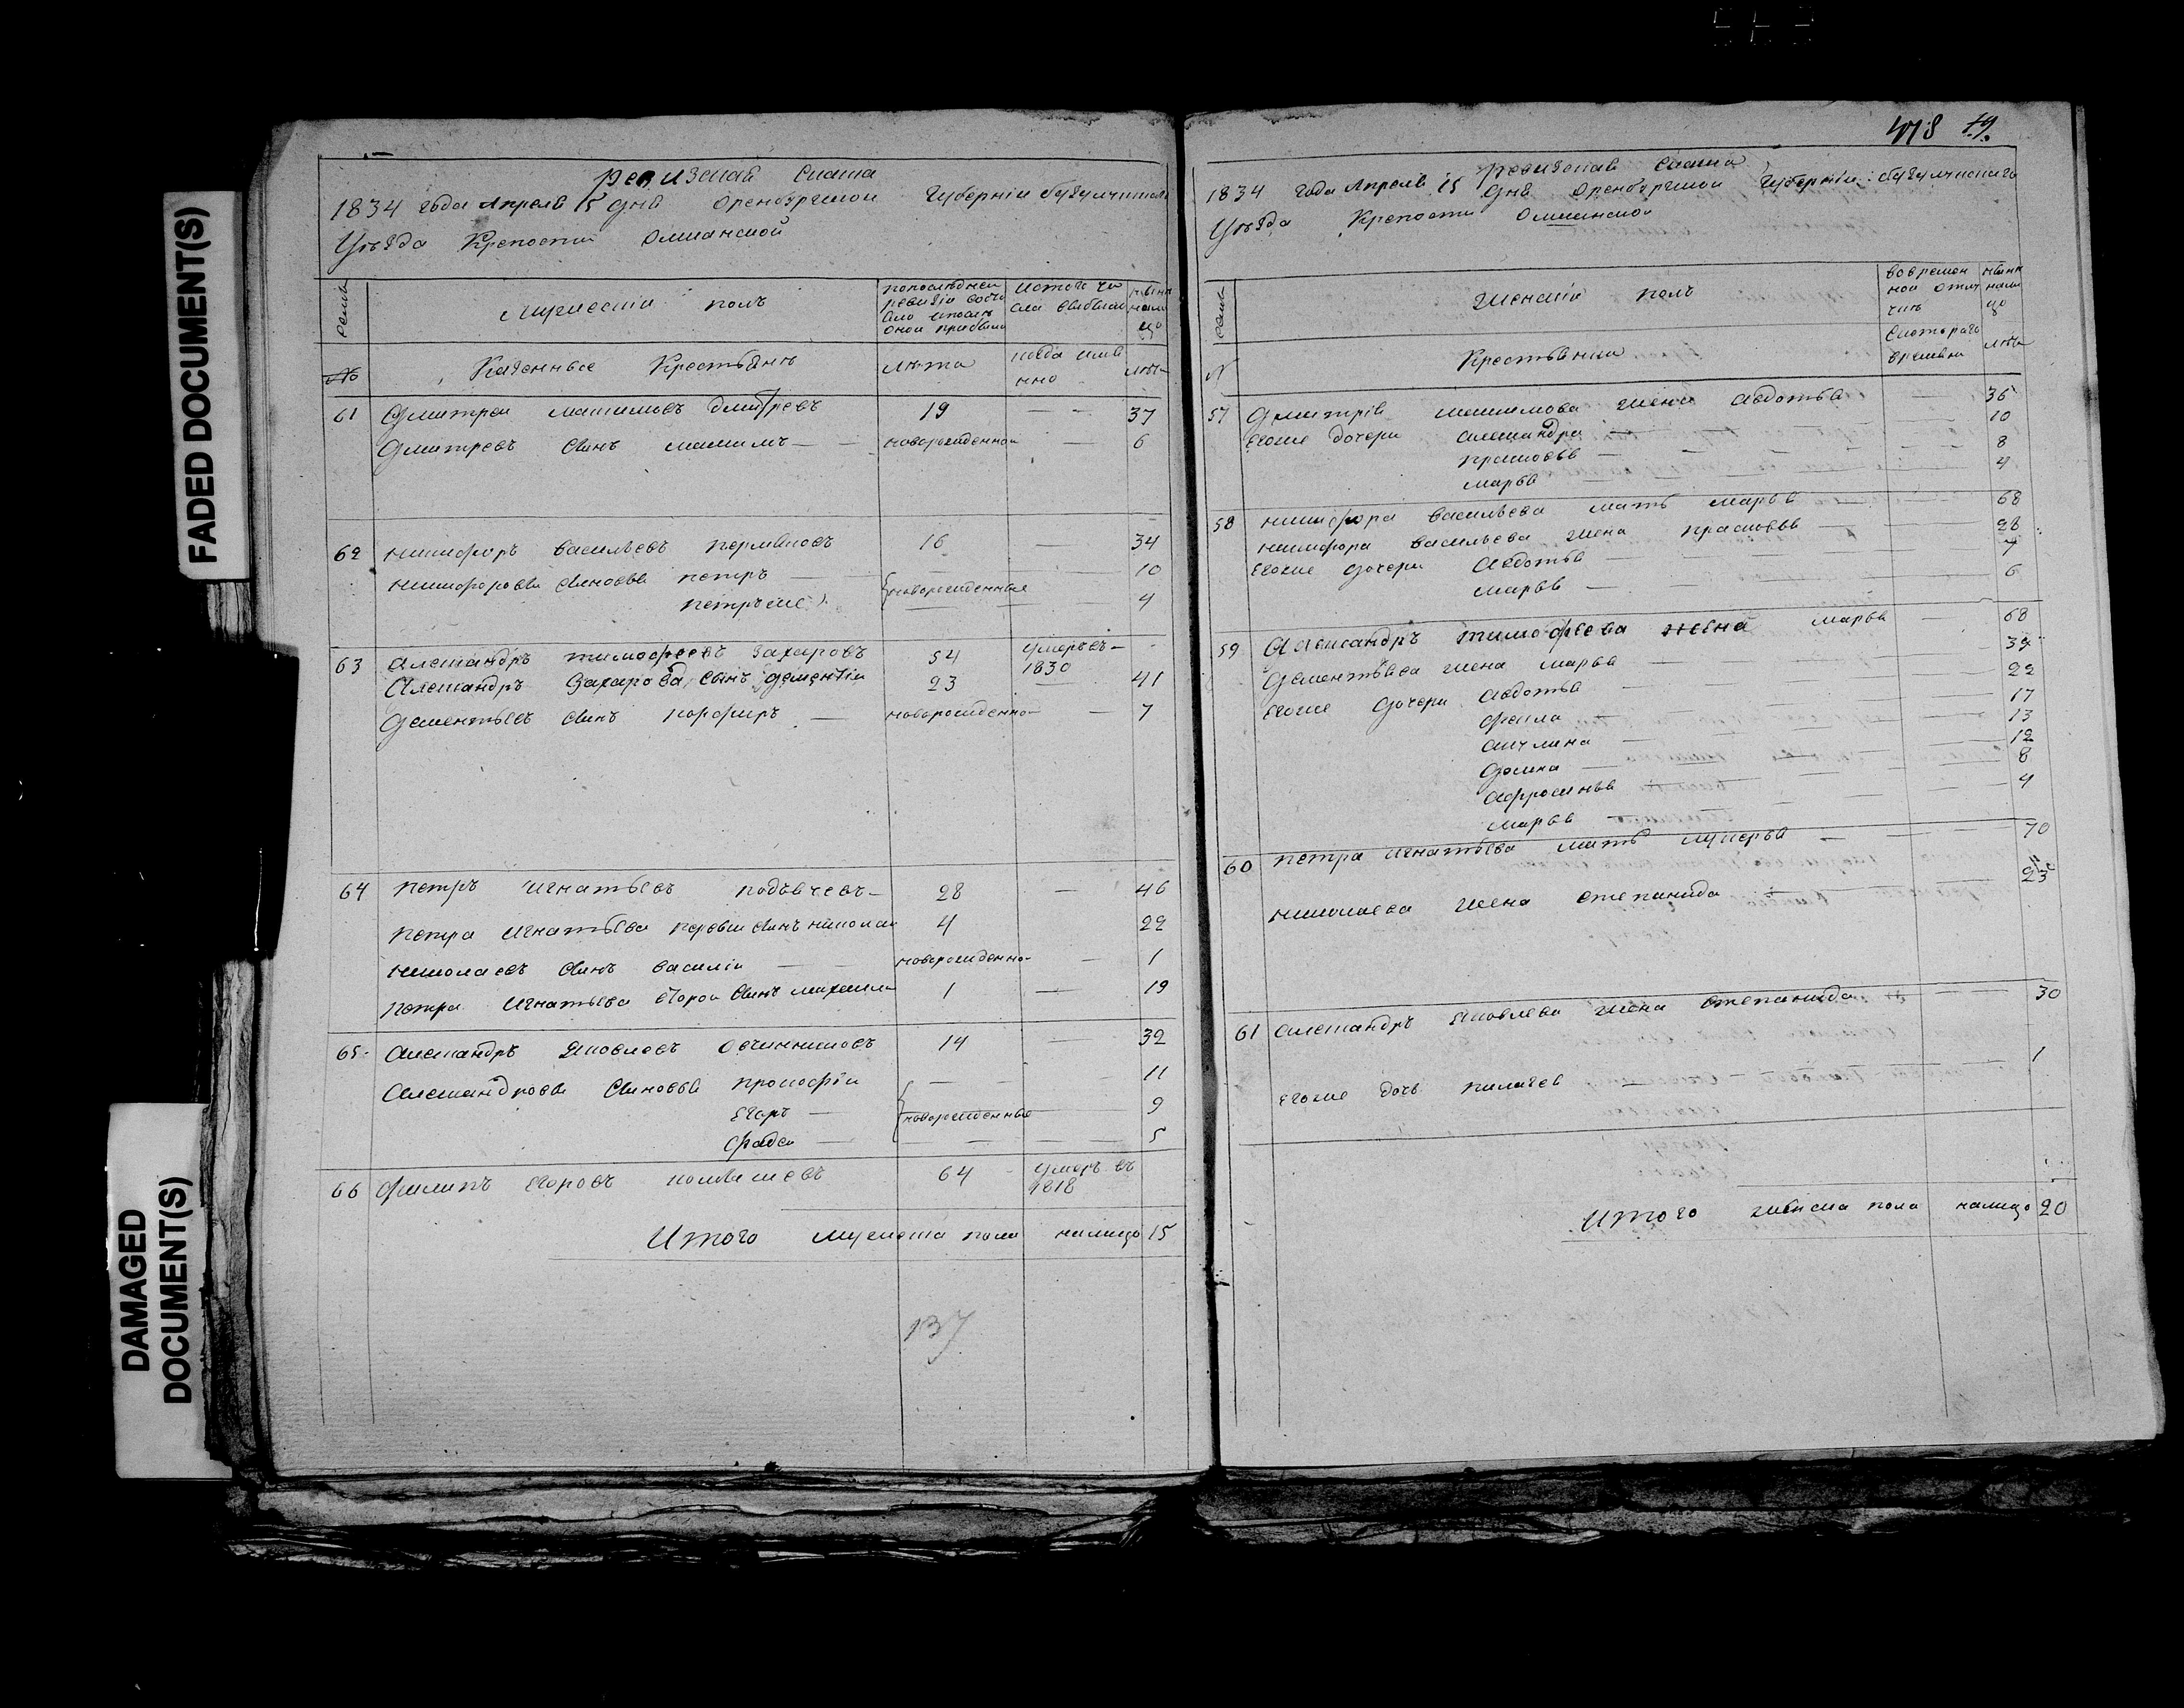 FADED DOCUMENT(S)
DAMAGED DOCUMENT(S)
ревизская сказка
1834 года Апреля 15 дня оренбургской Губернии бугулминска
Уѣзда Крепости Олшанской
семьи
мужескій полъ
по последнеи ревизіи состояло и после оной прибыло
ис того числа выбыло
ныне на лицо
№
Казенные Крестьяне
лѣта
когда имянно
лѣта
61 Дмитреи максимовъ дмитревъ 19 — 37
Дмитревъ сынъ максимъ — новорожденнои — 6
62 никифоръ васильевъ пермяковъ 16 — 34
никифоровы сыновья петръ — 10
петръ же новорожденные 4
63 александръ тимофеевъ захаровъ 54 умеръ въ 1830
Александръ Захарова сынъ дементіи 23 — 41
Дементьевъ сынъ порфиръ — новорожденно — 7
64 петръ игнатьевъ 28 — 46
петра игнатьева первыи сынъ николаи 4 22
николаевъ сынъ василіи — новорожденно — 1
петра игнатьева второи сынъ михаила 1 — 19
65 Александръ яковлевъ Овчинниковъ 14 32
Александровы сыновья прокофіи — 11
егоръ — новорожденные 9
— 5
66 филипъ егоровъ 64 умеръ въ 1818
Итого мужеска пола налицо 15
137
478 19.
ревизская сказка
1834 года Апреля 15 дня оренбургской Губерніи бугулминскаго
Уѣзда Крепости Олшанской
семьи
женскій полъ
во временной отлучке
ныне на лицо
№
Крестьянки
с котораго времяни
лѣта
57 Дмитрія максимова жена авдотья — 36
Его же дочери александра — 10
прасковья — 8
марья 4
58 никифора васильева мать марья 68
никифора васильева жена прасковья — 28
Его же дочери авдотья 7
марья — 6
59 Александръ тимофеева жена марья — 68
Дементьева жена марья — 39
Его же дочери авдотья — 22
фекла — 17
акулина — 13
домна — 12
афросинья 8
марья — 4
60 петра игнатьева мать лукерья — 70
николаева жена степанида 23
61 александръ яковлева жена степанида — 30
Его же дочь пилагея — 1
Итого женска пола налицо 20